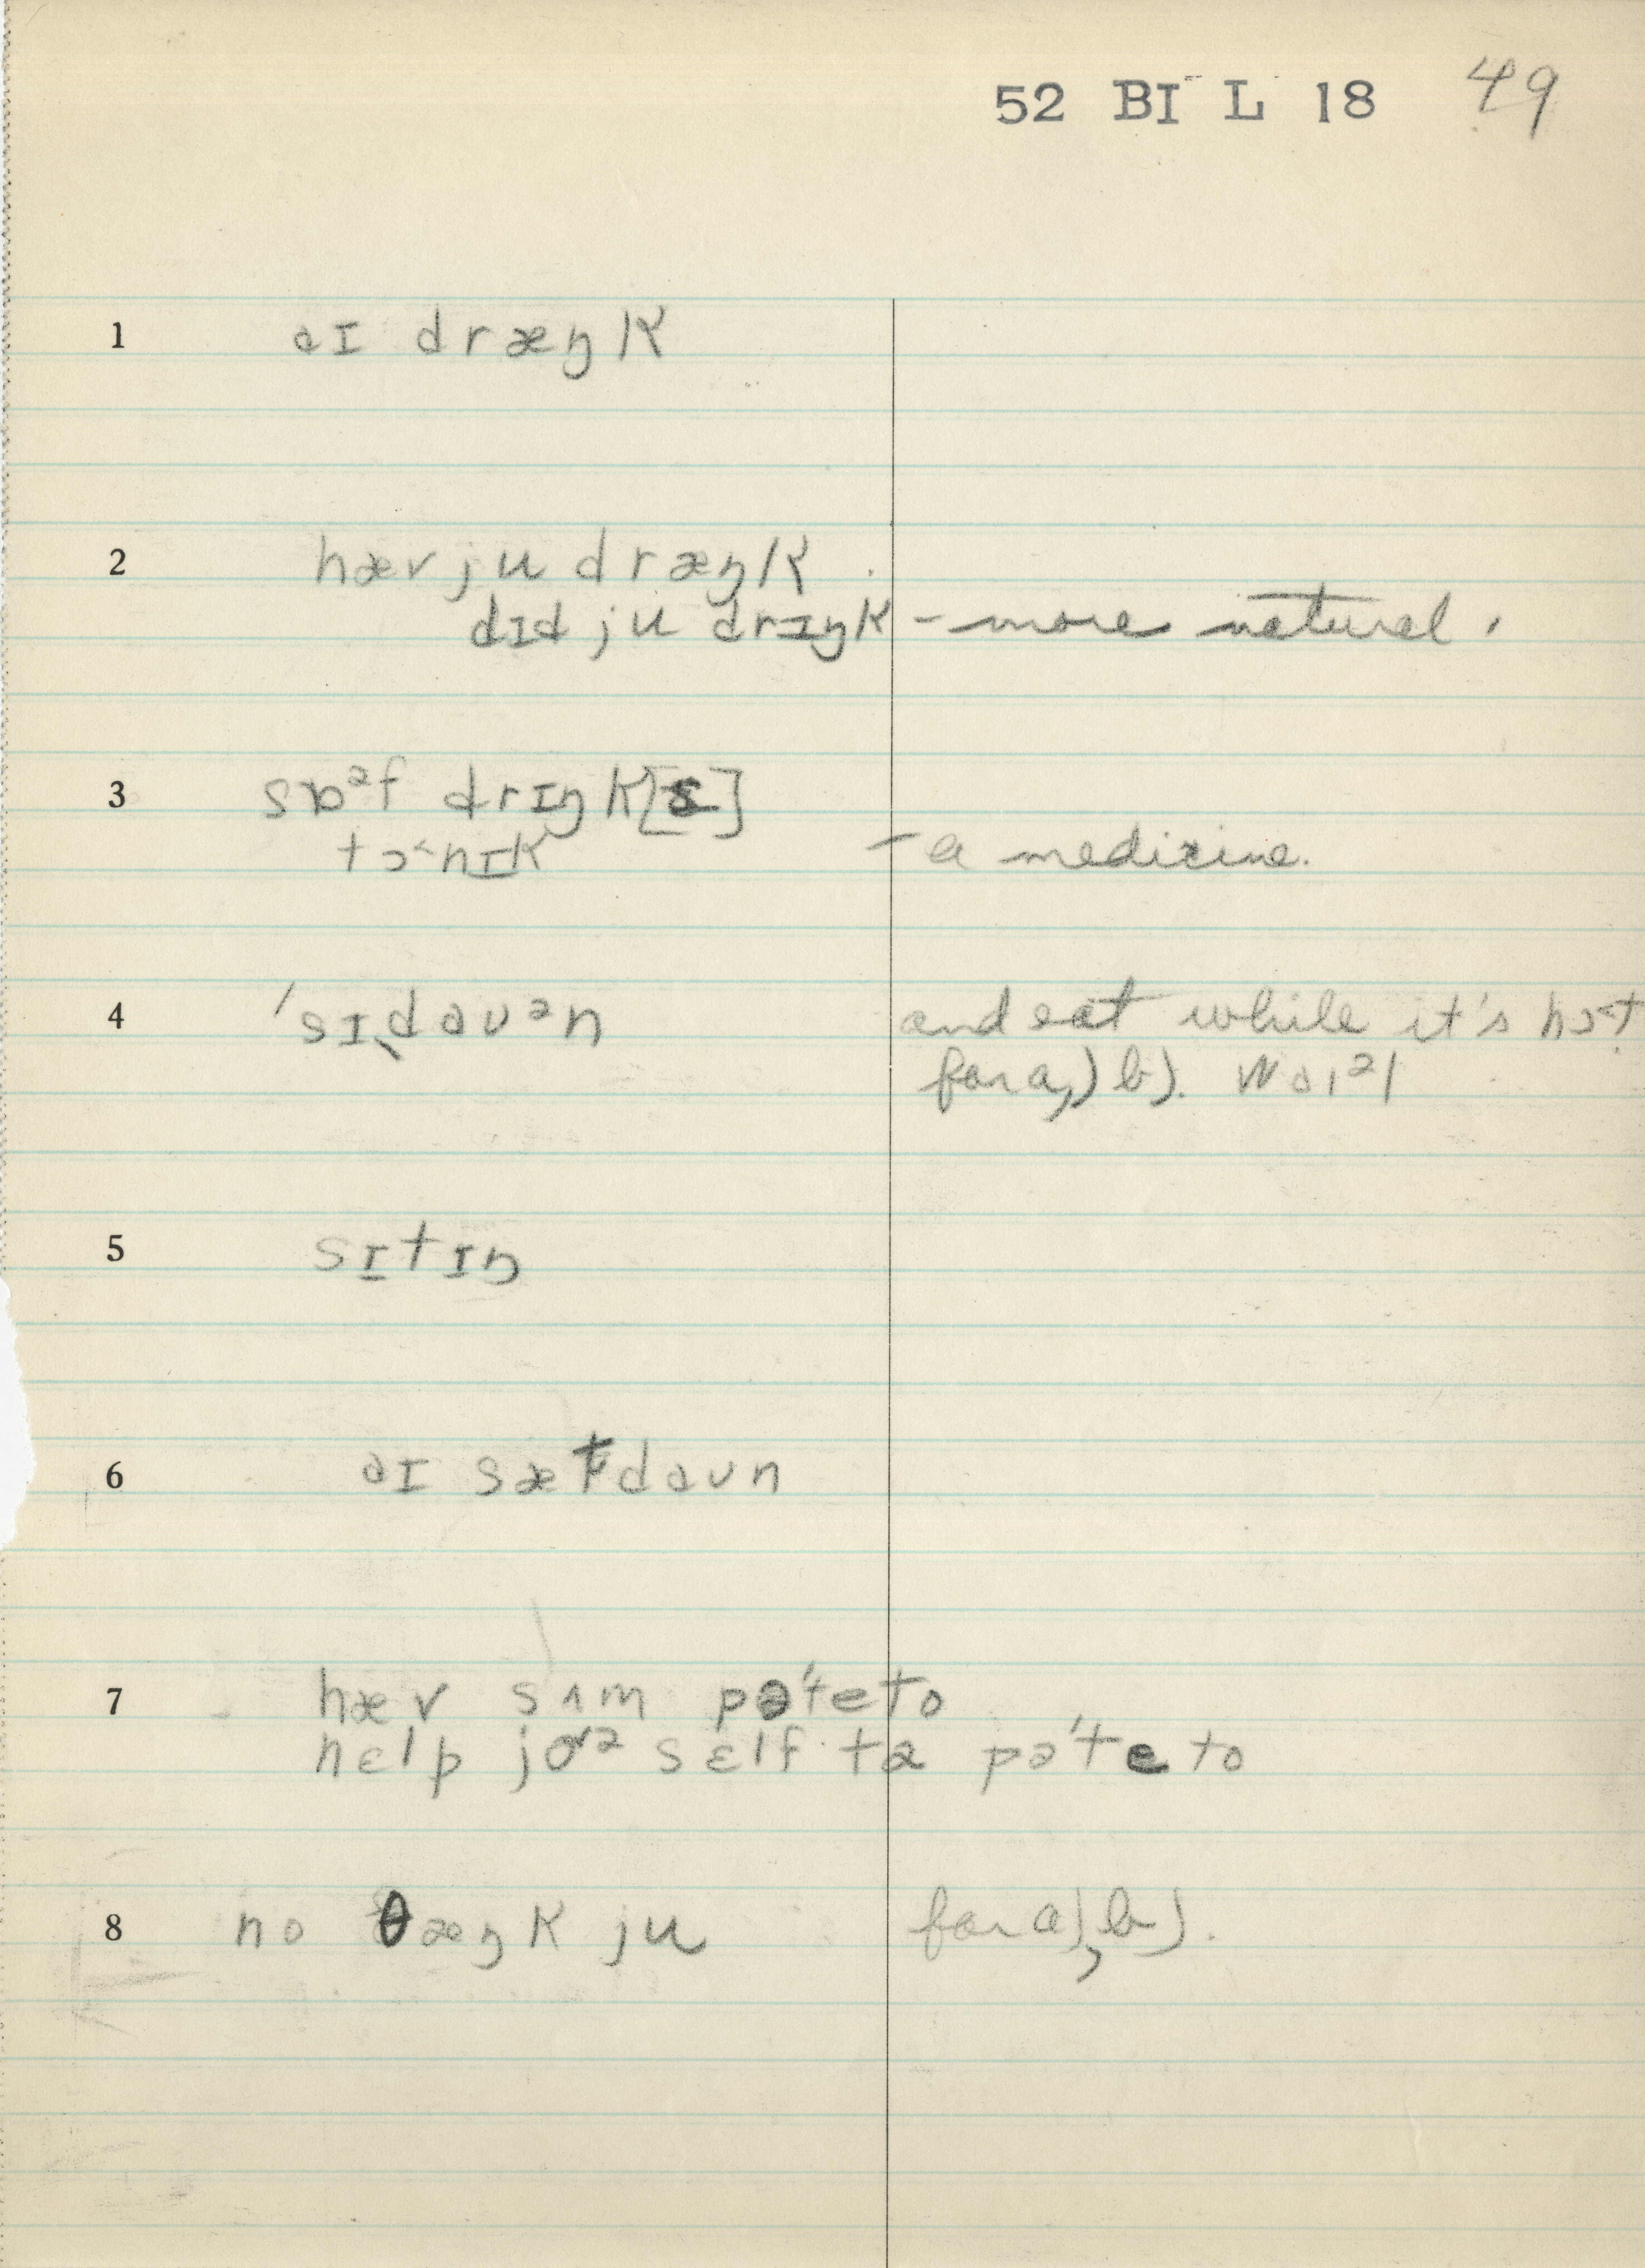 52 BI L 18 49
1 aɪ dræŋk
2 hæv ju dræŋk
dɪd ju drɪŋk - more natural.
3 sɒᵊf drɪŋk[s]
tɔ˂nɪk - a medicine.
4 ˈsɪˌdaʊᵊn and eat while it's hɔ˂t
for a), b). waɪᵊl
5 sɪtɪŋ
6 aɪ sætdaʊn
7 hæv sʌm pəˈteto
hɛlp joᵊ sɛlf tə pəˈteto
8 no θæŋk ju for a), b).